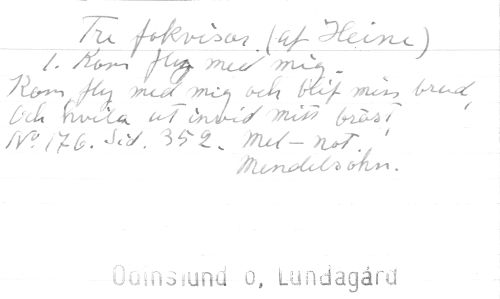 Tre fokvisor. (af Heine)
1. Kom fly med mig.
Kom fly med mig och blif min brud,
och hvila ut invid mitt bröst,
No. 176. Sid. 352. Mel-not.
Mendelsohn.
Odinslund o, Lundagård